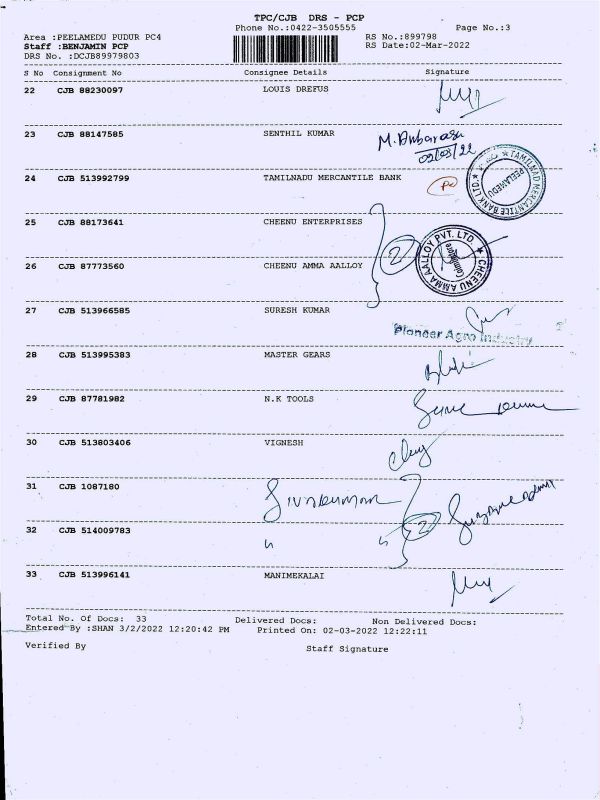 TPC/CJB DRS - PCP
Phone No.:0422-3505555 Page No.:3
Area :PEELAMEDU PUDUR PC4 RS No.:899798
Staff :BENJAMIN PCP RS Date:02-Mar-2022
DRS No. :DCJB89979803
S No Consignment No Consignee Details Signature
22 CJB 88230097 LOUIS DREFUS
23 CJB 88147585 SENTHIL KUMAR M.Anbarasu
02/03/22
24 CJB 513992799 TAMILNADU MERCANTILE BANK TAMILNAD MERCANTILE BANK LTD. PEELAMEDU
25 CJB 88173641 CHEENU ENTERPRISES
2
26 CJB 87773560 CHEENU AMMA AALLOY CHEENU AMMA AALLOY PVT. LTD. Coimbatore
27 CJB 513966585 SURESH KUMAR
Pioneer Agro Industry
28 CJB 513995383 MASTER GEARS
29 CJB 87781982 N.K TOOLS
30 CJB 513803406 VIGNESH
31 CJB 1087180 Sivakumar
2
32 CJB 514009783 "
33 CJB 513996141 MANIMEKALAI
Total No. Of Docs: 33 Delivered Docs: Non Delivered Docs:
Entered By :SHAN 3/2/2022 12:20:42 PM Printed On: 02-03-2022 12:22:11
Verified By Staff Signature